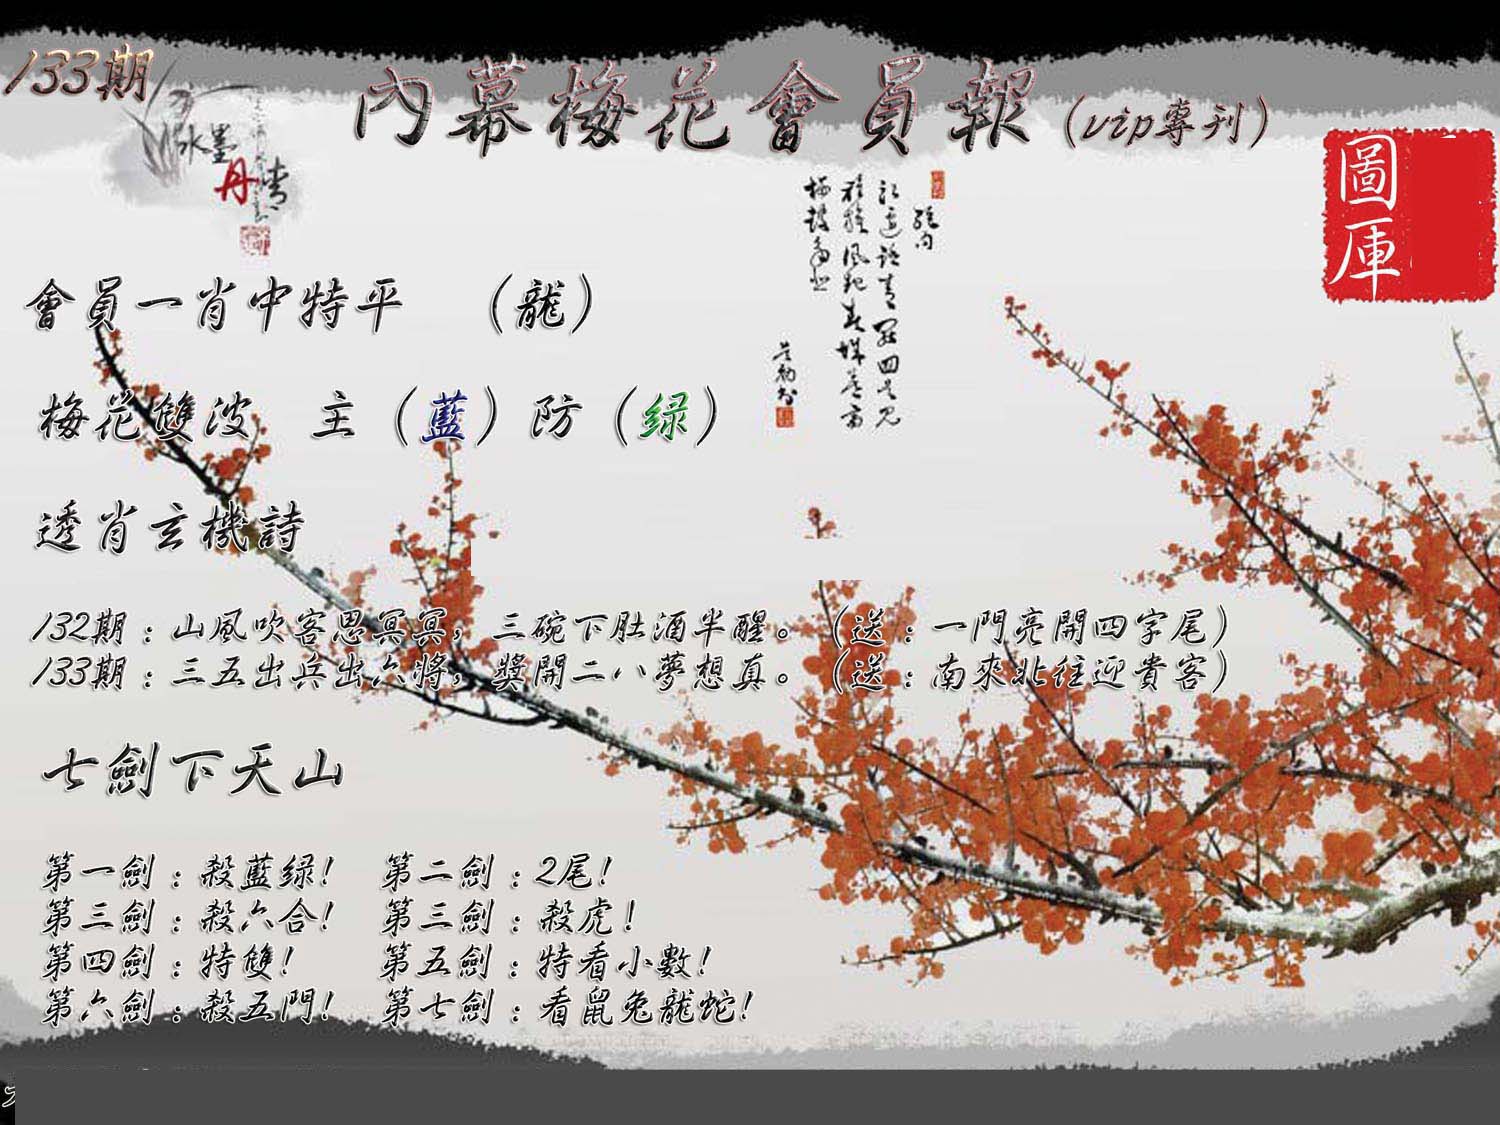 133期
內幕梅花會員報(vip專刊)
水墨
丹青
圖庫
會員一肖中特平 (龍)
梅花雙波 主(藍)防(绿)
透肖玄機詩
132期:山風吹客思冥冥,三碗下肚酒半醒。(送:一門亮開四字尾)
133期:三五出兵出六將,獎開二八夢想真。(送:南來北往迎貴客)
七劍下天山
第一劍:殺藍绿! 第二劍:2尾!
第三劍:殺六合! 第三劍:殺虎!
第四劍:特雙! 第五劍:特看小數!
第六劍:殺五門! 第七劍:看鼠兔龍蛇!